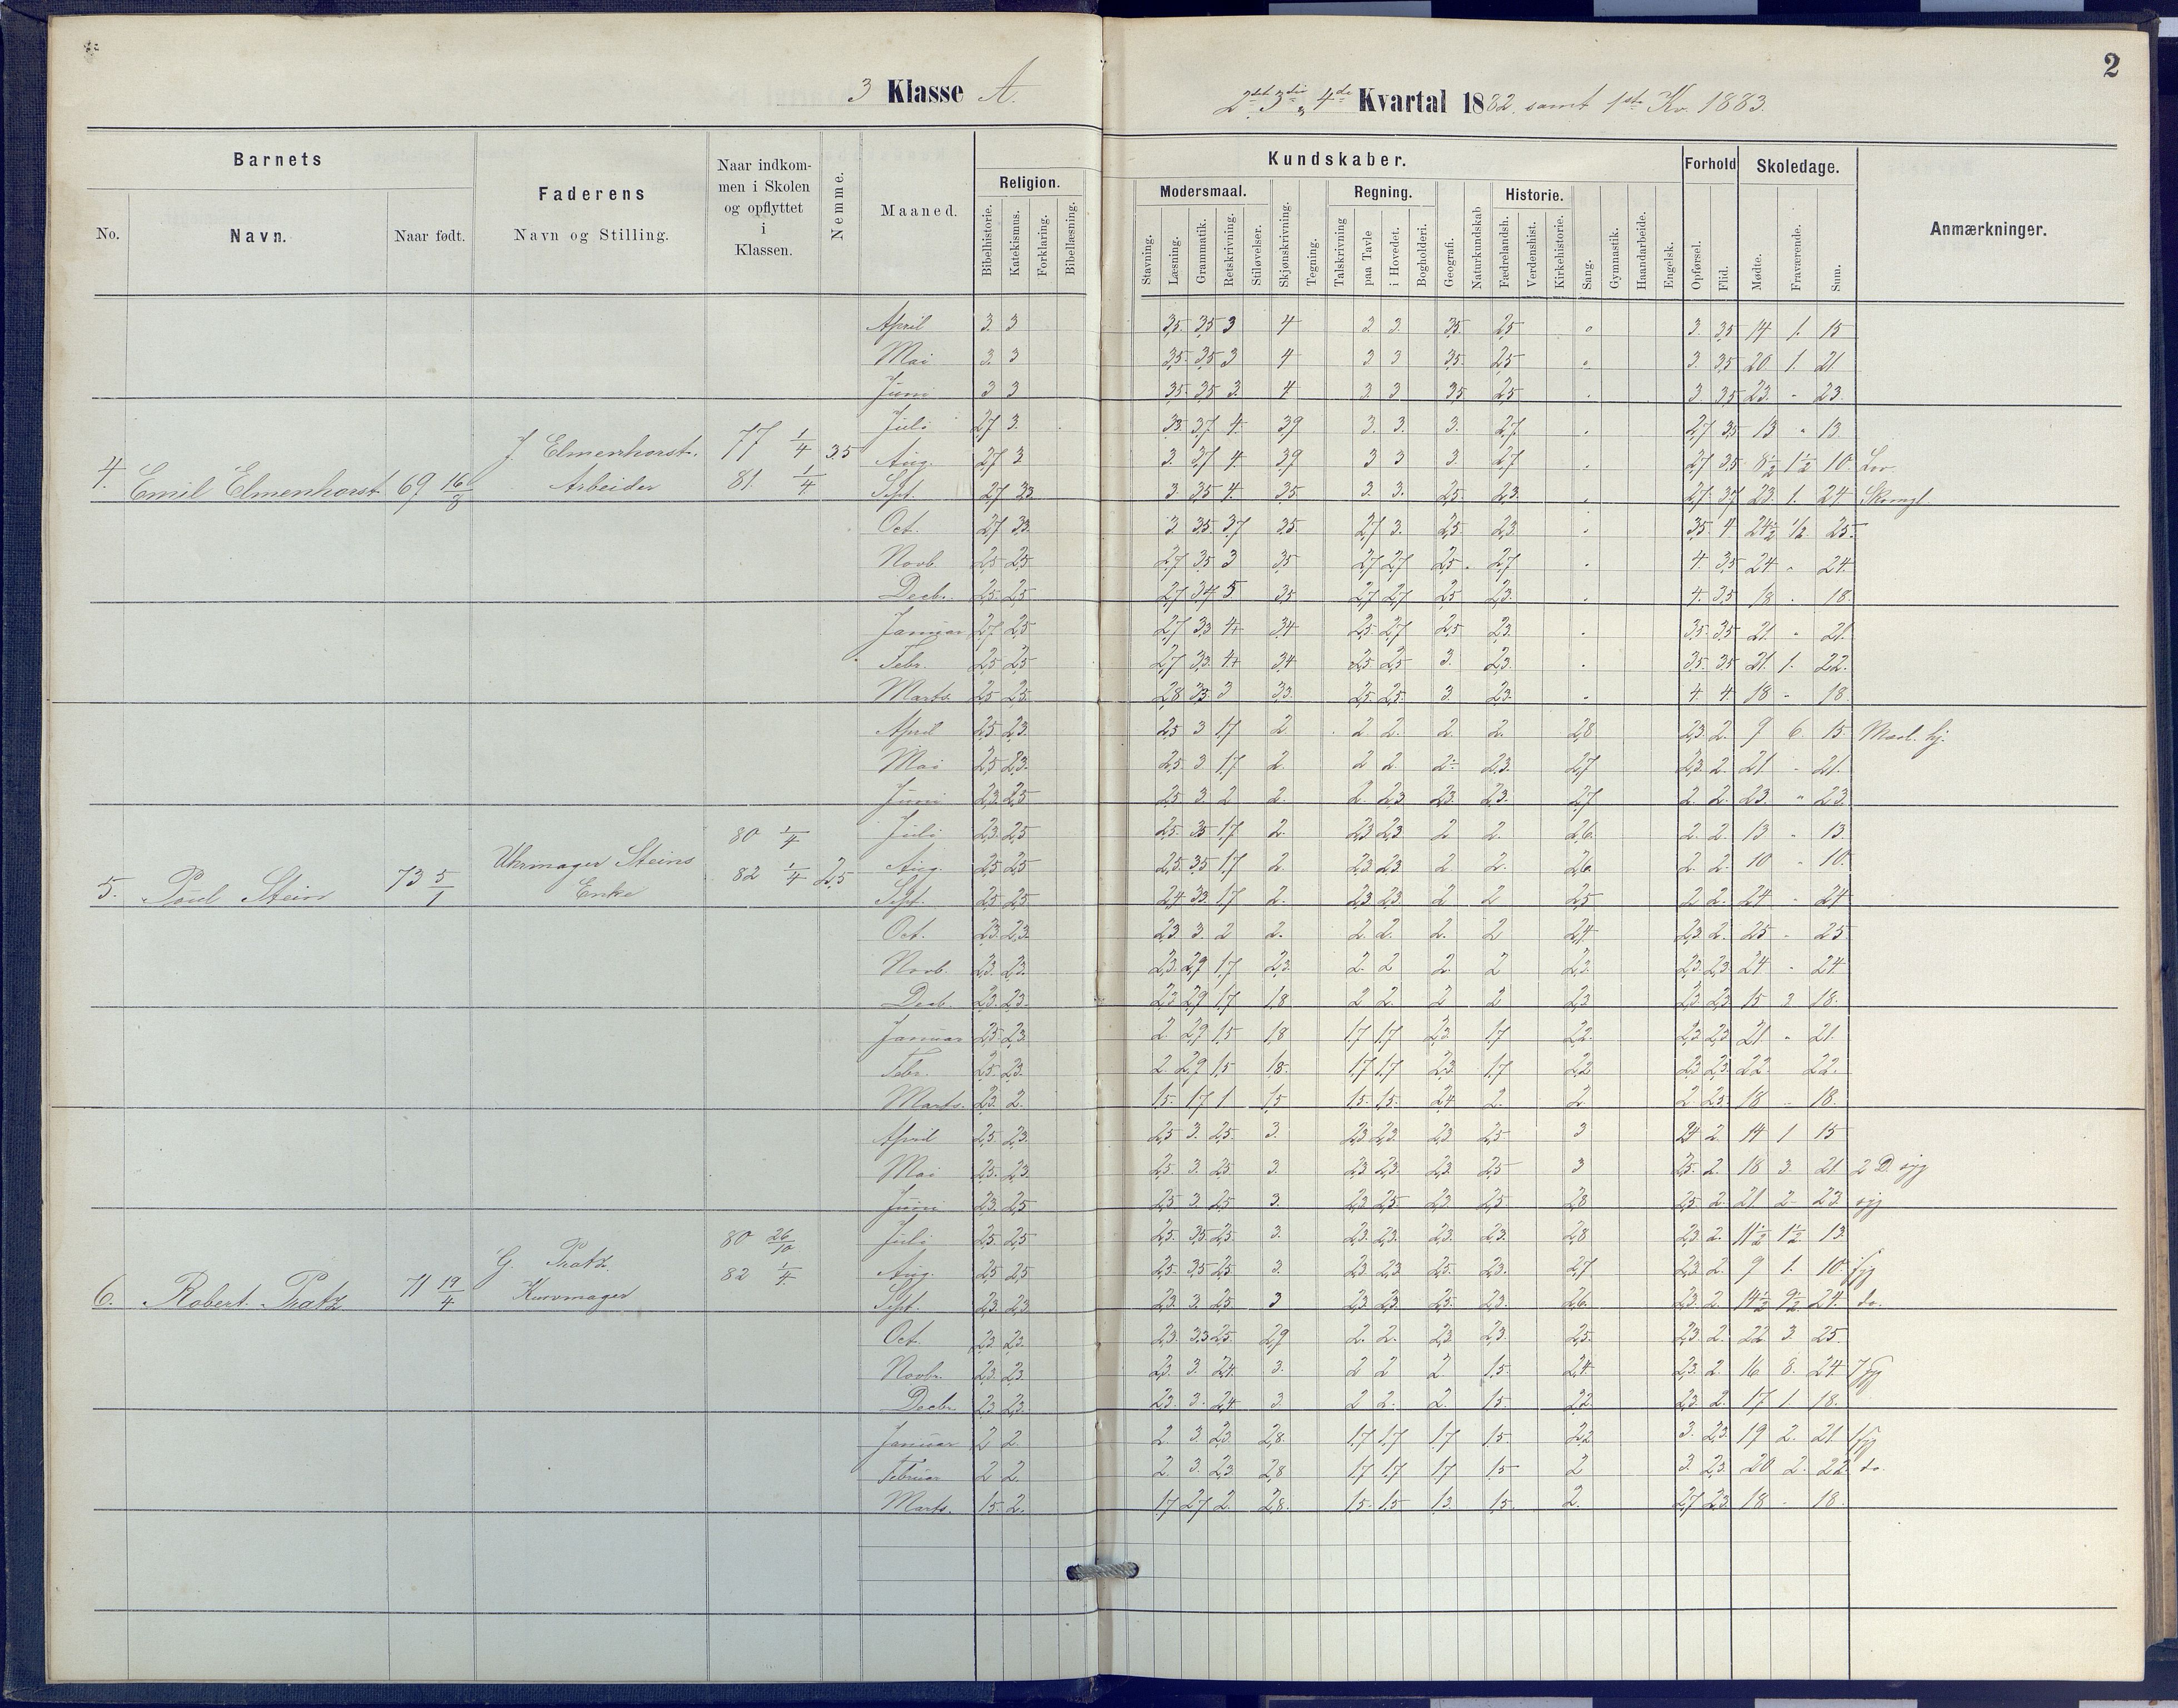 2
3 Klasse A.
2det 3die, 4de Kvartal 1882. samt 1ste Kv. 1883.
Barnets
No.
Navn.
Naar født.
Faderens
Navn og Stilling.
Naar indkom-
men i Skolen
og opflyttet
i
Klassen.
Nemme.
Maaned.
Religion.
Bibelhistorie.
Katekismus.
Forklaring.
Bibellæsning.
Kundskaber.
Modersmaal.
Stavning.
Læsning.
Grammatik.
Retskrivning.
Stiløvelser.
Skjønskrivning.
Tegning.
Regning.
Talskrivning
paa Tavle
i Hovedet.
Bogholderi.
Geografi.
Naturkundskab
Historie.
Fædrelandsh.
Verdenshist.
Kirkehistorie.
Sang.
Gymnastik.
Haandarbeide.
Engelsk.
Forhold
Opførsel.
Flid.
Skoledage.
Mødte.
Fraværende.
Sum.
Anmærkninger.
4. Emil Elmenhorst 69 16/8 J. Elmenhorst. Arbeider 77 1/4 81. 1/4 3,5
April 3. 3 3,5. 3,5 3 4 3 3. 3,5. 2,5 3. 3,5 14 1. 15
Mai 3. 3 3,5. 3,5 3 4 3 3 3,5. 2,5 3. 3,5 20 1. 21
Juni 3 3 3,5. 3,5 3. 4 3. 3 3,5 2,5 3 3,5 23. " 23.
Juli 2,7 3. 3,3. 3,7 4. 3,9 3. 3. 3. 2,7 2,7 3,5 13 " 13.
Aug. 2,7 3 3. 3,7 4. 3,9 3 3 3. 2,7 2,7 3,5. 8 1/2 1 1/2 10.
Sept. 2,7 3,3. 3. 3,5 4. 3,5. 3. 3. 2,5. 2,3. 2,7. 3,7 23 1. 24
Oct. 2,7 3,3. 3 3,5. 3,7 3,5. 2,7 3. 2,5. 2,3. 3,5. 4 24 1/2 1/2. 25.
Novb. 2,5 2,5 2,7 3,5 3 3,5 2,7 2,7 2,5. 2,7 4. 3,5 24 " 24.
Decbr. 2,5. 2,5 2,7 3,4 3 3,5 2,7 2,7 2,5 2,3. 4. 3,5 18 " 18.
Januar 2,7 2,5 2,7 3,3 4 3,4 2,5. 2,7 2,5 2,3. 3,5. 3,5 21. " 21.
Febr. 2,5 2,5 2,7 3,3. 4 3,4 2,5 2,5 3. 2,3. 3,5. 3,5 21. 1. 22.
Marts. 2,5 2,5. 2,8 3,3 3 3,3. 2,5. 2,5. 3. 2,3. 4. 4 18 " 18.
5. Poul Stein 73 5/1 Uhrmager Steins Enke 80 1/4 82 1/4 2,5
April 2,5. 2,3. 2,5 3 1,7 2. 2 2. 2. 2. 2,8 2,3. 2. 9 6. 15.
Mai 2,5 2,3. 2,5. 3. 1,7 2. 2 2. 2 2,3. 2,7 2,3. 2. 21 " 21.
Juni 2,3. 2,5 2,5. 3. 2 2. 2. 2,3 2,3. 2,3. 2,7 2. 2. 23. " 23.
Juli 2,3. 2,5 2,5. 3,5 1,7 2. 2,3 2,3. 2 2. 2,6. 2. 2. 13 " 13.
Aug. 2,5 2,5 2,5. 3,5 1,7 2. 2,3 2,3. 2. 2. 2,6. 2. 2. 10 " 10.
Sept. 2,5 2,5 2,4 3,3. 1,7 2. 2,3 2,3. 2 2 2,5 2 2. 24 " 24
Oct. 2,3. 2,3. 2,3 3. 2 2. 2. 2. 2. 2 2,4 2,3. 2. 25 " 25
Novb. 2,3. 2,3. 2,3. 2,9 1,7 2,3. 2. 2 2. 2 2,3. 2,3. 2,3. 24 " 24.
Decb. 2,3. 2,3. 2,3 2,9 1,7 1,8 2 2. 2 2 2,3 2,3. 2,3. 15 3 18.
Januar 2,5. 2,3. 2. 2,9 1,5 1,8 1,7 1,7 2,3. 1,7 2,2. 2,3 2,3. 21 " 21.
Febr. 2,5. 2,3. 2. 2,9 1,5 1,8. 1,7 1,7 2,3. 1,7 2,2 2,3 2,3. 22. 22.
Marts. 2,3. 2. 1,5. 1,7 1 1,5 1,5. 1,5. 2,4 2. 2 2 2,3. 18 " 18.
6. Robert Pratz 71 19/4 G. Pratz. Kurvmager 80 26/10 82 1/4
April 2,5 2,3. 2,5 3. 2,5. 3. 2,3 2,3. 2,3. 2,5 3 2,4 2. 14 1 15
Mai 2,5. 2,3. 2,5. 3. 2,5 3. 2,3 2,3. 2,3. 2,5 3 2,5. 2. 18 3. 21. 2 D. syg
Juni 2,3. 2,5 2,5 3. 2,5 3. 2,3 2,5. 2,3. 2,5. 2,8 2,5. 2. 21. 2 23. syg
Juli 2,5. 2,5 2,5. 3,5. 2,5. 3. 2,3. 2,3. 2,3. 2,3. 2,8 2,3. 2. 11 1/2 1 1/2. 13.
Aug. 2,5 2,5 2,5. 3,5 2,5 3. 2,3 2,3 2,5. 2,3. 2,7 2,3. 2. 9 1. 10. syg
Sept. 2,3. 2,3 2,3. 3. 2,5 3 2,3 2,3. 2,5. 2,3. 2,6. 2,3. 2. 14 1/2 9 1/2 24. do.
Oct. 2,3. 2,3. 2,3. 3,3 2,5. 2,9 2. 2. 2,3 2,3. 2,5. 2,3. 2. 22 3. 25.
Novbr. 2,3. 2,3. 2,3. 3. 2,4. 3. 2 2 2. 1,5. 2,4. 2,3. 2. 16 8. 24. syg
Decbr. 2,3 2,3. 2,3. 3. 2,4 3. 2 2. 2. 1,5. 2,2. 2,3. 2. 17 1. 18.
Januar 2 2. 2. 3. 2,3. 2,8. 1,7 1,7 1,7 1,5. 2,2 3. 2,3. 19 2. 21. syg
Februar 2 2. 2. 3. 2,3. 2,8 1,7 1,7 1,7 1,5 2 3. 2,3. 20 2. 22 do.
Marts. 1,5. 2. 1,7 2,7 2. 2,8. 1,5. 1,5 1,3. 1,5. 2. 2,7 2,3. 18 " 18.